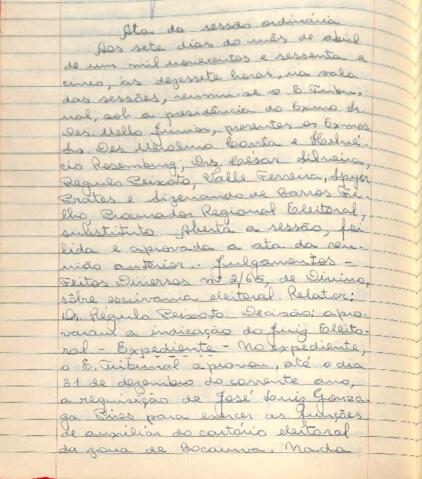 Ata da sessão ordinária
Aos sete dias do mês de abril
de um mil novecentos e sessenta e
cinco, às dezessete horas, na sala
das sessões, reuniu-se o E. Tribu-
nal, sob a presidência do Exmo Sr.
Des. Mello Júnior, presentes os Exmos
Srs. Des. Merolino Corrêa e
cio Rosemburg, Drs. César Silveira,
Régulo Peixoto, Valle Ferreira, Spyer
Prates e Sizenando de Barros Fi-
lho, Procurador Regional Eleitoral,
substituto. Aberta a sessão, foi
lida e aprovada a ata da reu-
nião anterior. - Julgamentos -
Feitos Diversos nº 2/65, de Divino,
sôbre escrivania eleitoral Relator:
Dr. Régulo Peixoto. Decisão: apro-
varam a indicação do Juiz Eleito-
ral - Expediente - No expediente,
o E. Tribunal aprovou, até o dia
31 de dezembro do corrente ano,
a requisição de José Luiz Gonza-
ga Pires para exercer as funções
de auxiliar do cartório eleitoral
da zona de Bocaiuva. Nada